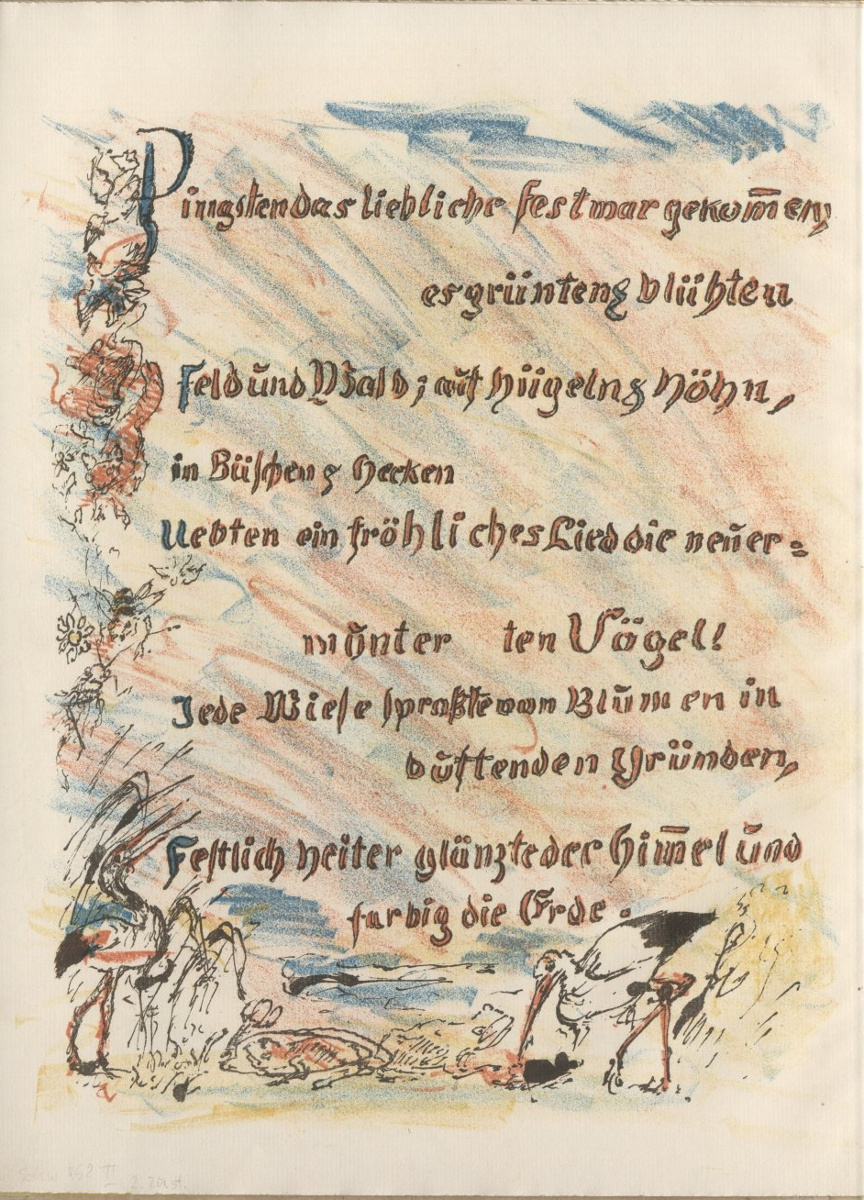 Pfingsten das liebliche Fest war gekom̅en,
es grünten & blühten
Feld ūnd Wald; auf Hügeln & Höhn,
in Büschen & Hecken
Uebten ein fröhliches Lied die neūer=
mūnter ten Vögel!
Jede Wiese sproßte von Blūmen in
dūftenden Gründen,
Festlich heiter glänzte der Him̅el ūnd
farbig die Erde.